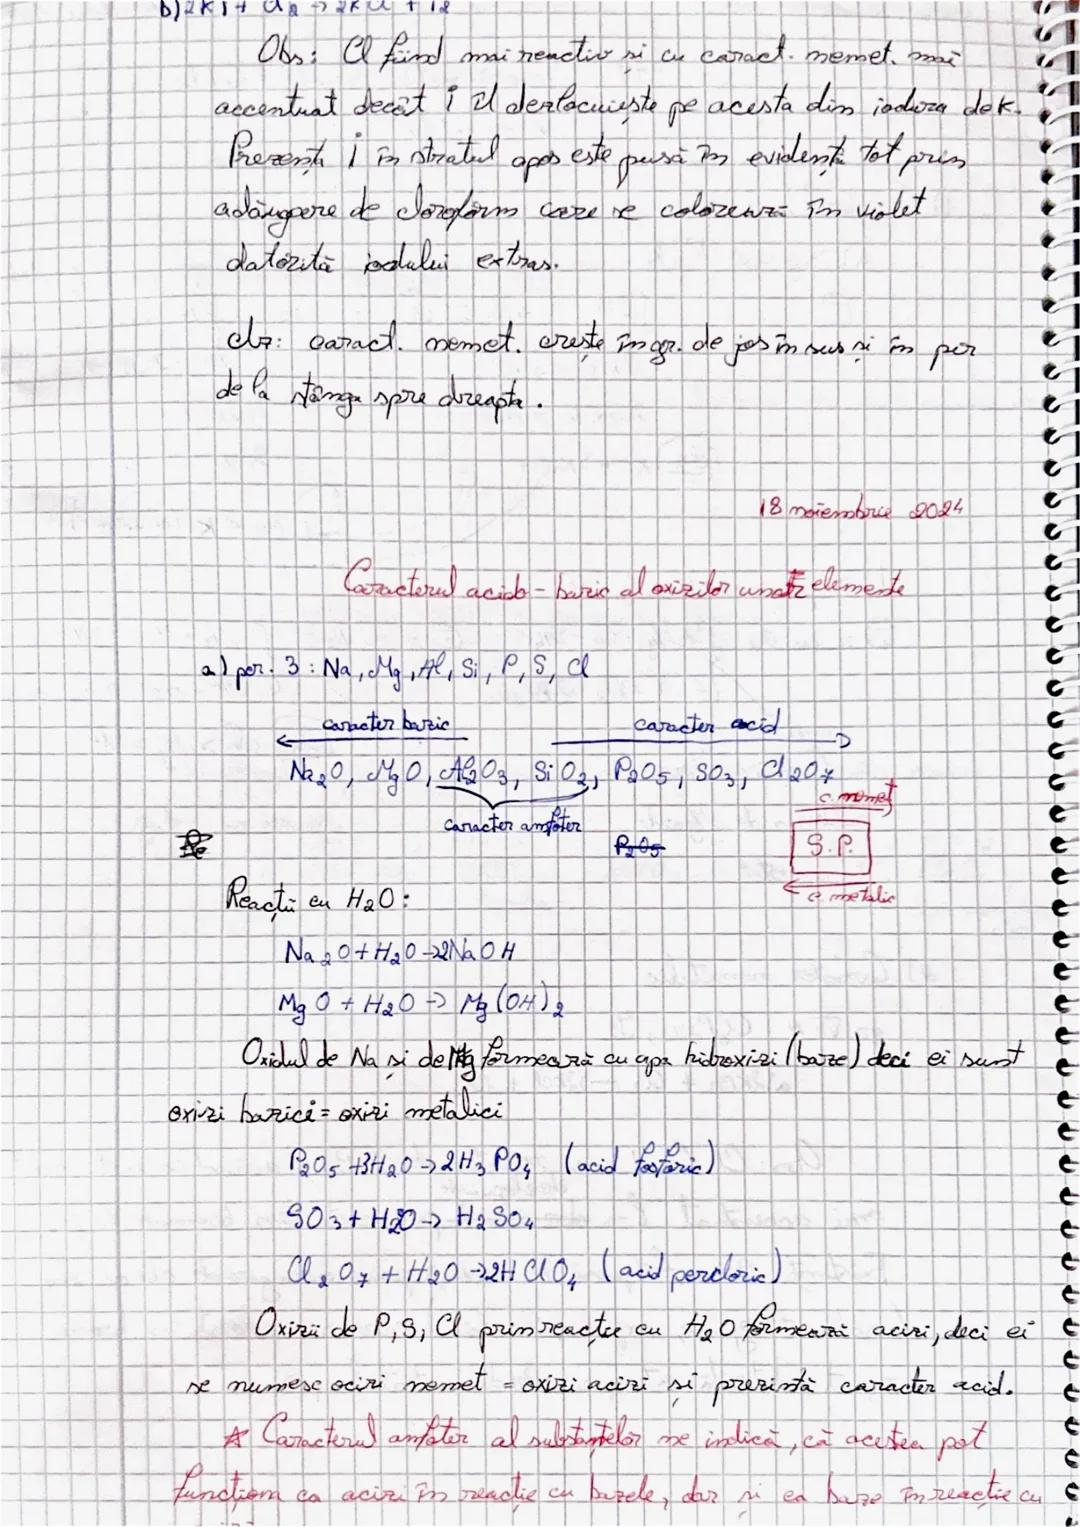 b) 2KI + Cl2 → 2KCl + I2
Obs: Cl fiind mai reactiv si cu caract. nemet. mai
accentuat decât I îl dezlocuiește pe acesta din iodura de K.
Prezența I în stratul apos este pusă în evidență tot prin
adăugere de cloroform care se colorează în violet
datorită iodului extras.
clz: caract. nemet. crește în gr. de jos în sus și în per
de la stânga spre dreapta.
18 noiembrie 2024
Caracterul acido-bazic al oxizilor unor elemente
a) per. 3: Na, Mg, Al, Si, P, S, Cl
caracter bazic caracter acid
Na2O, MgO, Al2O3, SiO2, P2O5, SO3, Cl2O7
c. nemet
caracter amfoter
P2O5 S.P.
c. metalic
Reacții cu H2O:
Na2O + H2O → 2NaOH
MgO + H2O → Mg(OH)2
Oxidul de Na și de Mg formează cu apa hidroxizi (baze) deci ei sunt
oxizi bazici = oxizi metalici
P2O5 + 3H2O → 2H3PO4 (acid fosforic)
SO3 + H2O → H2SO4
Cl2O7 + H2O → 2HClO4 (acid percloric)
Oxizii de P, S, Cl prin reacție cu H2O formează acizi, deci ei
se numesc ocizi nemet = oxizi acizi și prezintă caracter acid.
* Caracterul amfoter al substanțelor ne indică, că acestea pot
funcționa ca acizi în reacție cu bazele, dar și ca baze în reacție cu